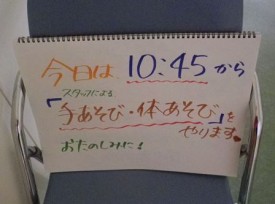 今日は 10:45 から
スタッフによる
「手あそび・体あそび」を
やります♥
おたのしみに!